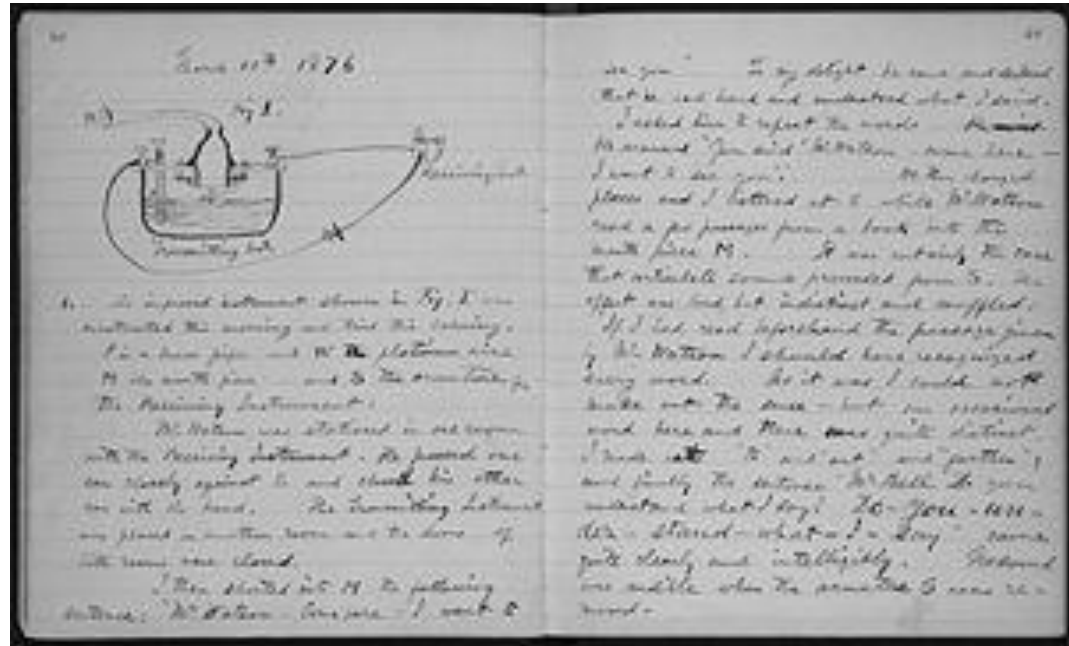 1876
Fig. 1.
1. The improved instrument shown in Fig. 1 was
constructed this morning and tried this evening.
P is a brass pipe and W the platinum wire
M the mouth piece and S the armature of
the Receiving Instrument.
Mr. Watson was stationed in one room
with the Receiving Instrument. He pressed one
ear closely against S and closed his other
ear with his hand. The Transmitting Instrument
was placed in another room and the doors of
both rooms were closed.
I then shouted into M the following
sentence: "Mr Watson - Come here - I want to
see you". To my delight he came and declared
that he had heard and understood what I said.
I asked him to repeat the words.
He answered "You said 'Mr Watson - come here -
I want to see you'." We then changed
places and I listened at S while Mr Watson
read a few passages from a book into the
mouth piece M. It was certainly the case
that articulate sounds proceeded from S. The
effect was loud but indistinct and muffled.
If I had read beforehand the passage given
by Mr Watson I should have recognized
every word. As it was I could not
make out the sense - but an occasional
word here and there was quite distinct.
I made out "to" and "out" and "further";
and finally the sentence "Mr Bell do you
understand what I say? Do - you - un -
der - stand - what - I - say" came
quite clearly and intelligibly. No sound
was audible when the armature S was re-
moved.